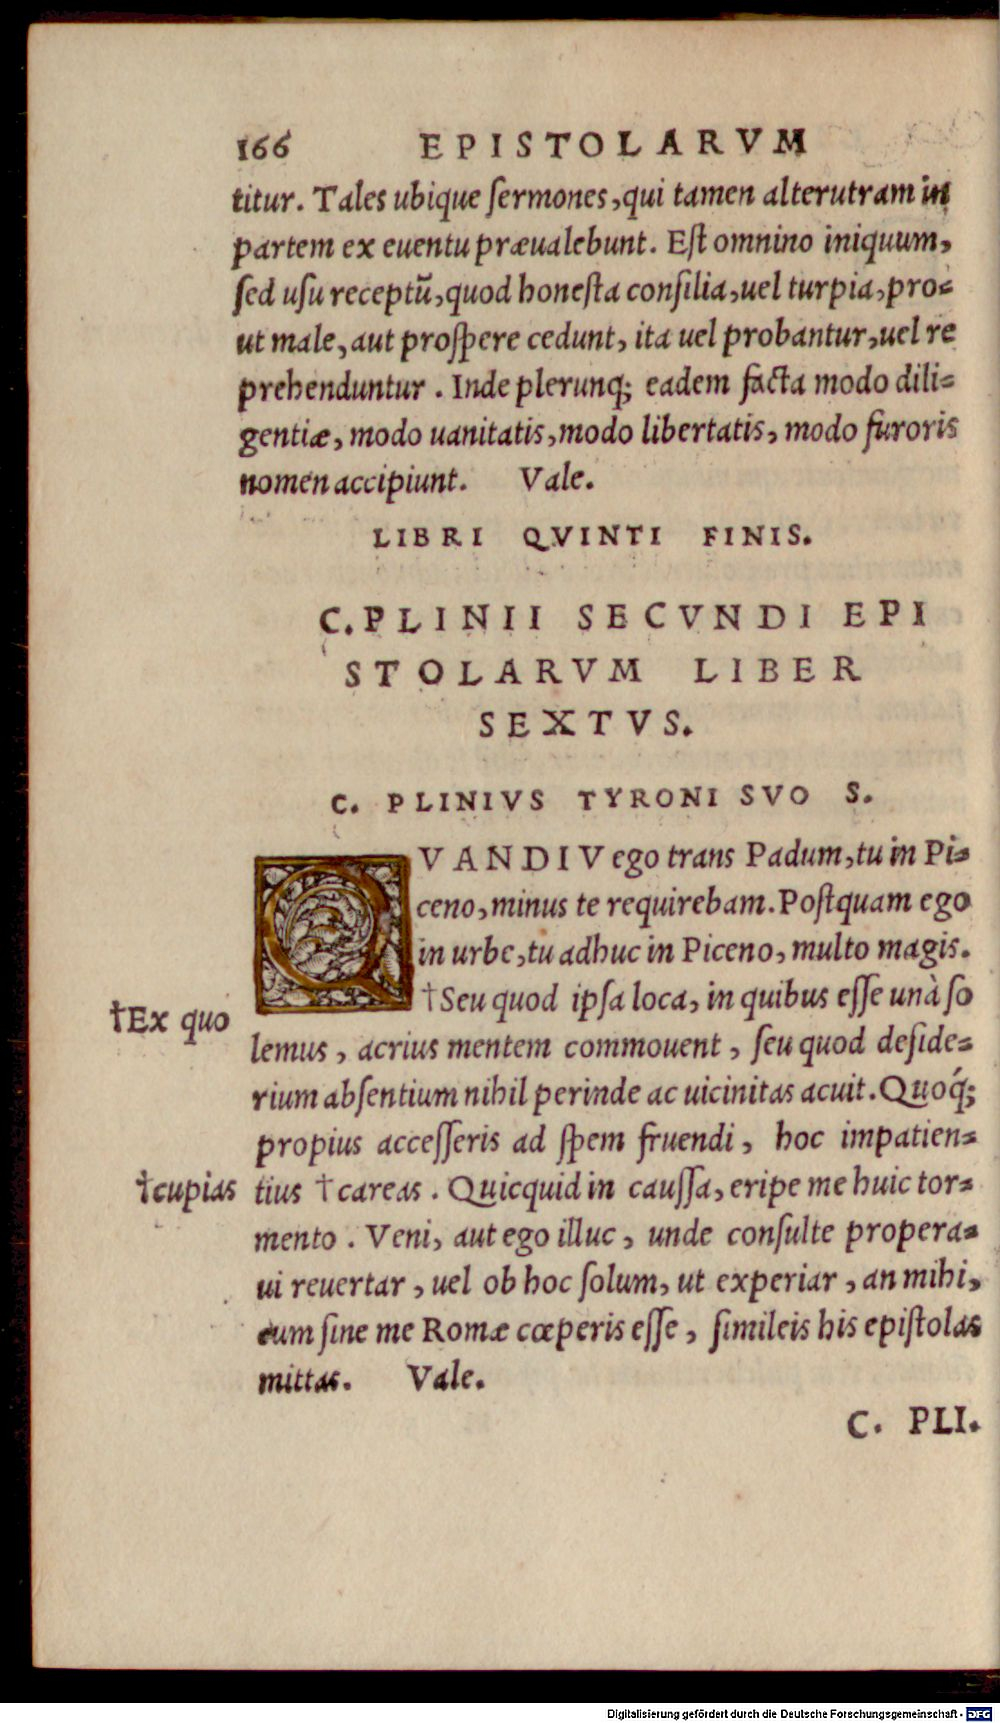 166 EPISTOLARVM
titur. Tales ubique ſermones, qui tamen alterutram in
partem ex euentu præualebunt. Eſt omnino iniquum,
ſed uſu receptũ, quod honeſta conſilia, uel turpia, pro-
ut male, aut proſpere cedunt, ita uel probantur, uel re
prehenduntur. Inde plerunq; eadem facta modo dili-
gentiæ, modo uanitatis, modo libertatis, modo furoris
nomen accipiunt. Vale.
LIBRI QVINTI FINIS.
C. PLINII SECVNDI EPI
STOLARVM LIBER
SEXTVS.
C. PLINIVS TYRONI SVO S.
QVANDIV ego trans Padum, tu in Pi-
ceno, minus te requirebam. Poſtquam ego
in urbe, tu adhuc in Piceno, multo magis.
†Seu quod ipſa loca, in quibus eſſe unà ſo
†Ex quo
lemus, acrius mentem commouent, ſeu quod deſide-
rium abſentium nihil perinde ac uicinitas acuit. Quoq́;
propius acceſſeris ad ſpem fruendi, hoc impatien-
†cupias
tius †careas. Quicquid in cauſſa, eripe me huic tor-
mento. Veni, aut ego illuc, unde conſulte propera-
ui reuertar, uel ob hoc ſolum, ut experiar, an mihi,
cum ſine me Romæ cœperis eſſe, ſimileis his epiſtolas
mittas. Vale.
C. PLI.
Digitalisierung gefördert durch die Deutsche Forschungsgemeinschaft - DFG